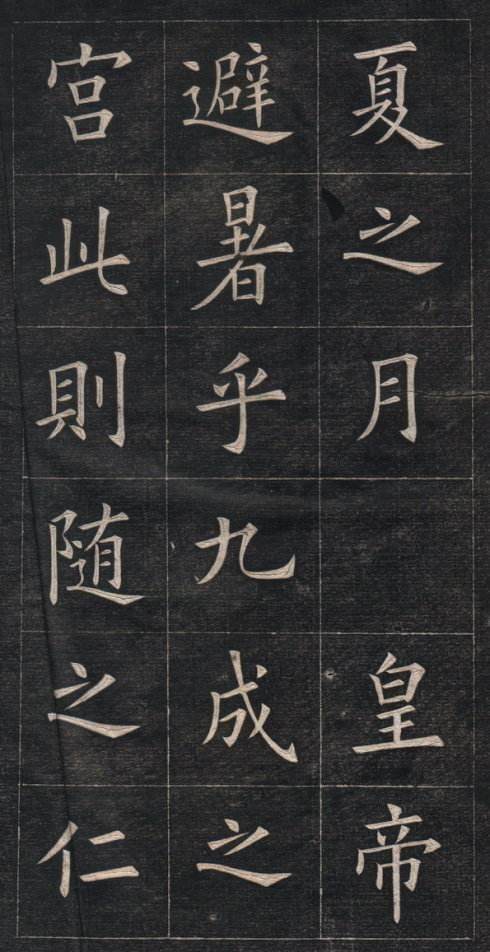 夏之月皇帝
避暑乎九成之
宮此則随之仁